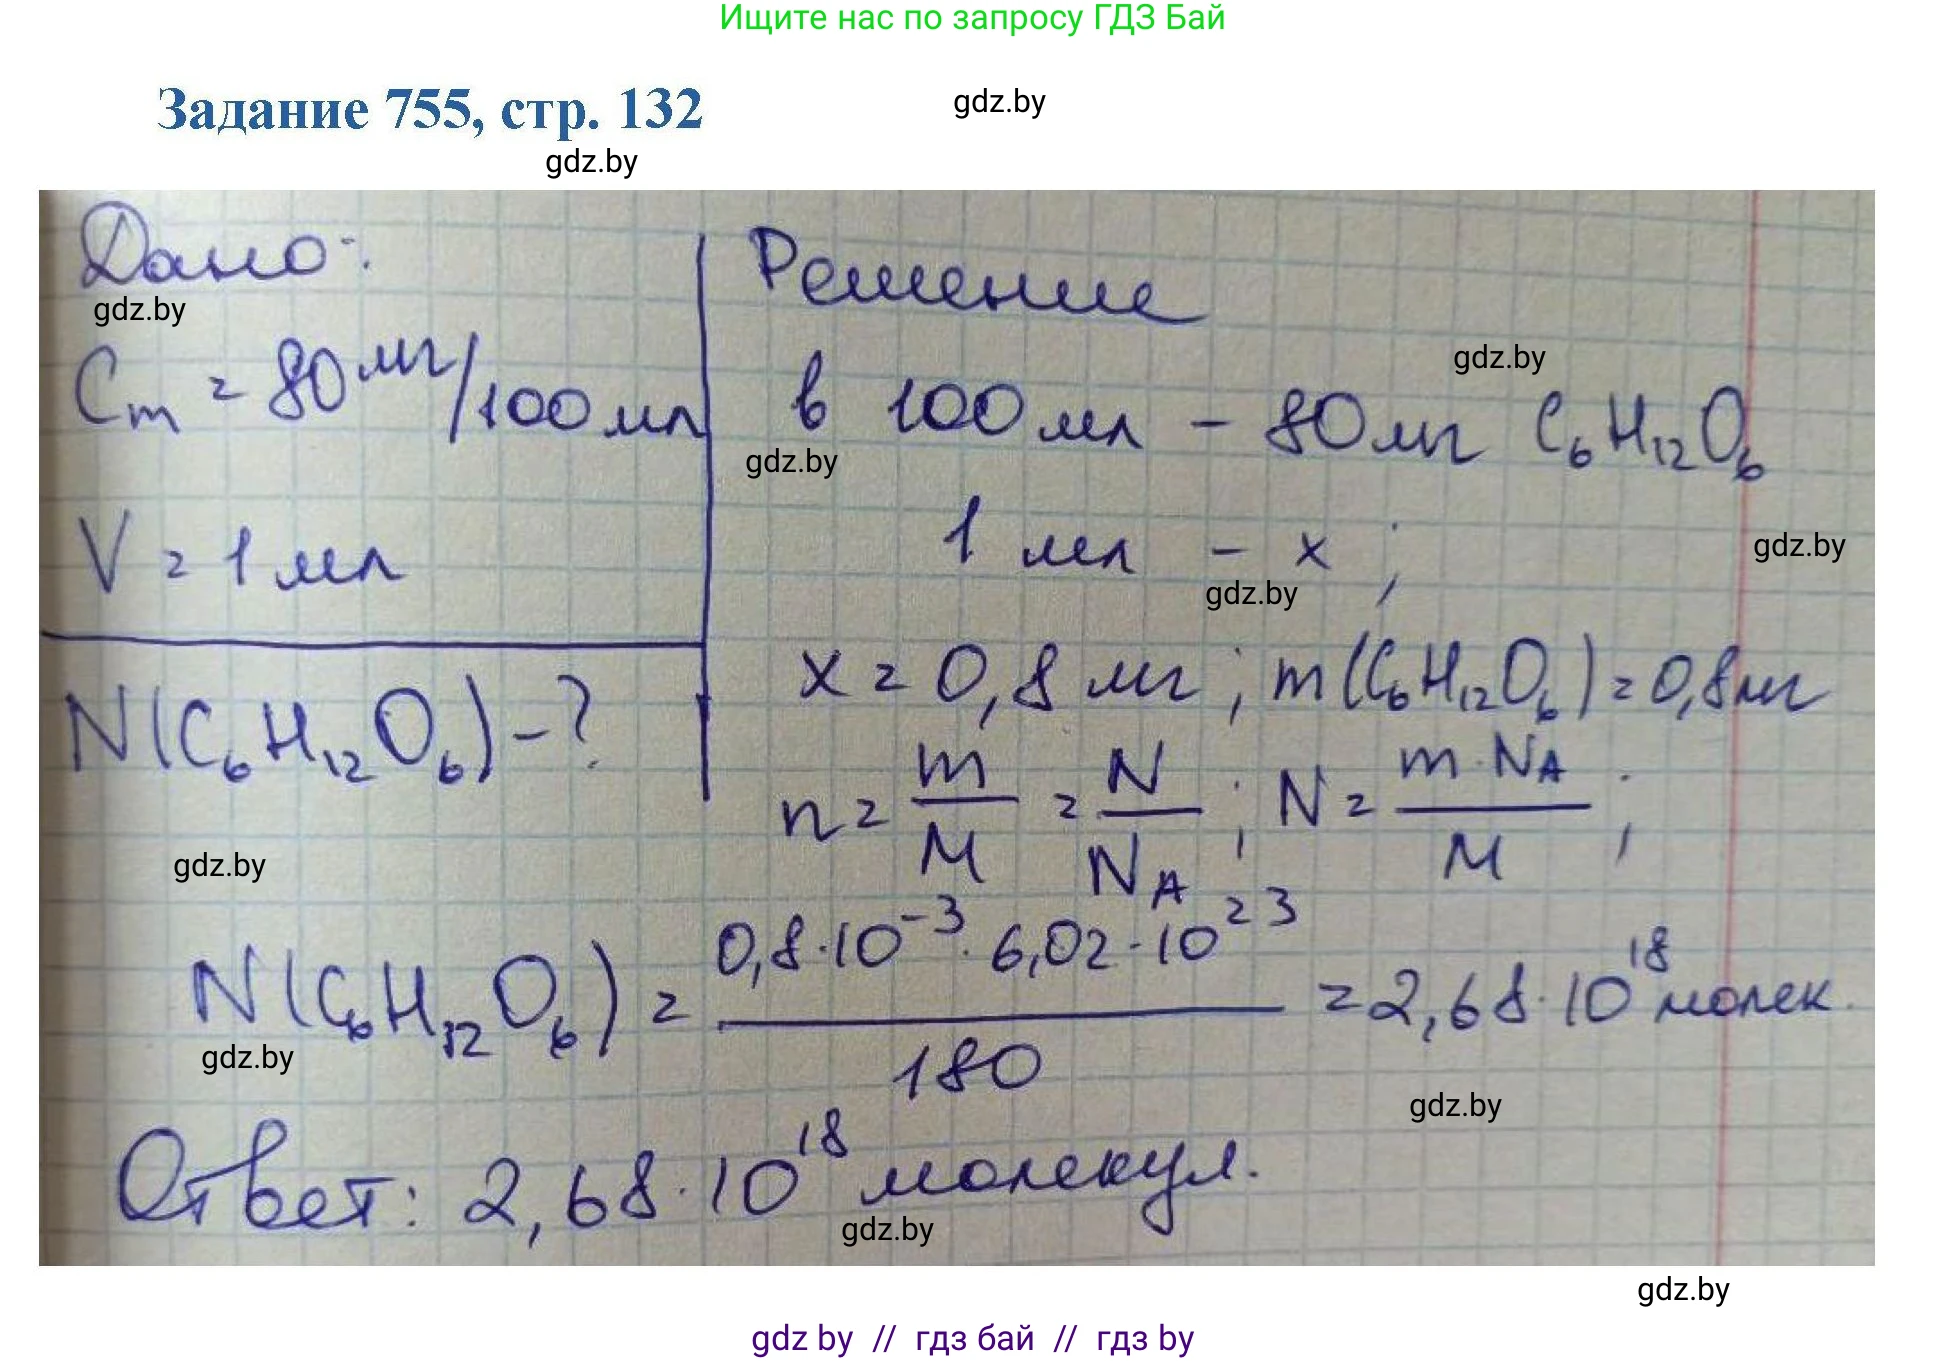 Ищите нас по запросу ГДЗ Бай
Задание 755, стр. 132
gdz.by
gdz.by
Дано:
gdz.by
Cm = 80 мг/100 мл
V = 1 мл
N(C₆H₁₂O₆) - ?
Решение
gdz.by
в 100 мл - 80 мг C₆H₁₂O₆
gdz.by
1 мл - x ;
gdz.by
gdz.by
x = 0,8 мг ; m(C₆H₁₂O₆) = 0,8 мг
n = m/M = N/N_A ; N = m·N_A/M ;
gdz.by
N(C₆H₁₂O₆) = 0,8·10⁻³·6,02·10²³/180 = 2,68·10¹⁸ молек.
gdz.by
gdz.by
Ответ: 2,68·10¹⁸ молекул.
gdz.by
gdz.by
gdz by // гдз бай // гдз by